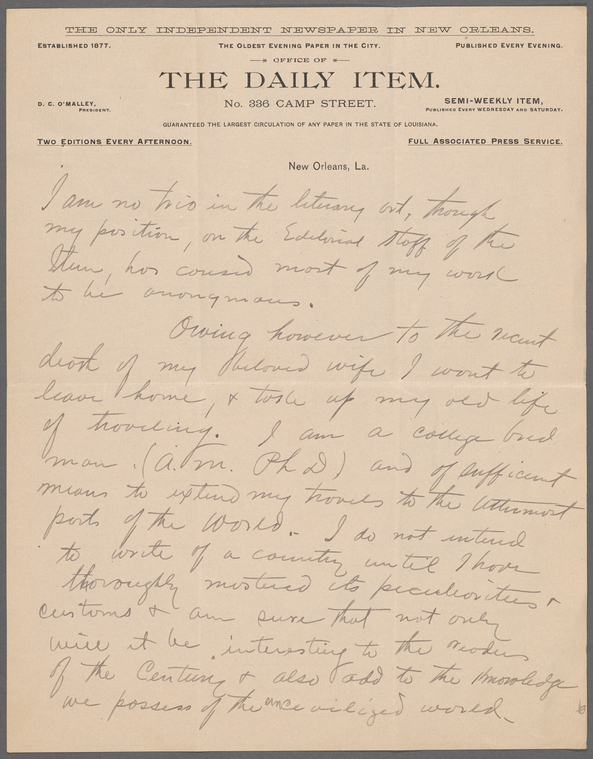 THE ONLY INDEPENDENT NEWSPAPER IN NEW ORLEANS.
ESTABLISHED 1877. THE OLDEST EVENING PAPER IN THE CITY. PUBLISHED EVERY EVENING.
OFFICE OF
THE DAILY ITEM.
D. C. O'MALLEY, No. 336 CAMP STREET. SEMI-WEEKLY ITEM,
PRESIDENT. PUBLISHED EVERY WEDNESDAY AND SATURDAY.
GUARANTEED THE LARGEST CIRCULATION OF ANY PAPER IN THE STATE OF LOUISIANA.
TWO EDITIONS EVERY AFTERNOON. FULL ASSOCIATED PRESS SERVICE.
New Orleans, La.
I am no in the literary art, though
my position, on the Editorial Staff of the
Item, has caused most of my work
to be anonymous.
Owing however to the recent
death of my beloved wife I want to
leave home, & take up my old life
of traveling. I am a college bred
man. (A.M. Ph D) and of sufficient
means to extend my travels to the uttermost
parts of the World. - I do not intend
to write of a country until I have
thoroughly mastered its peculiarities &
customs & am sure that not only
will it be interesting to the readers
of the Century & also add to the knowledge
we possess of the uncivilized world -